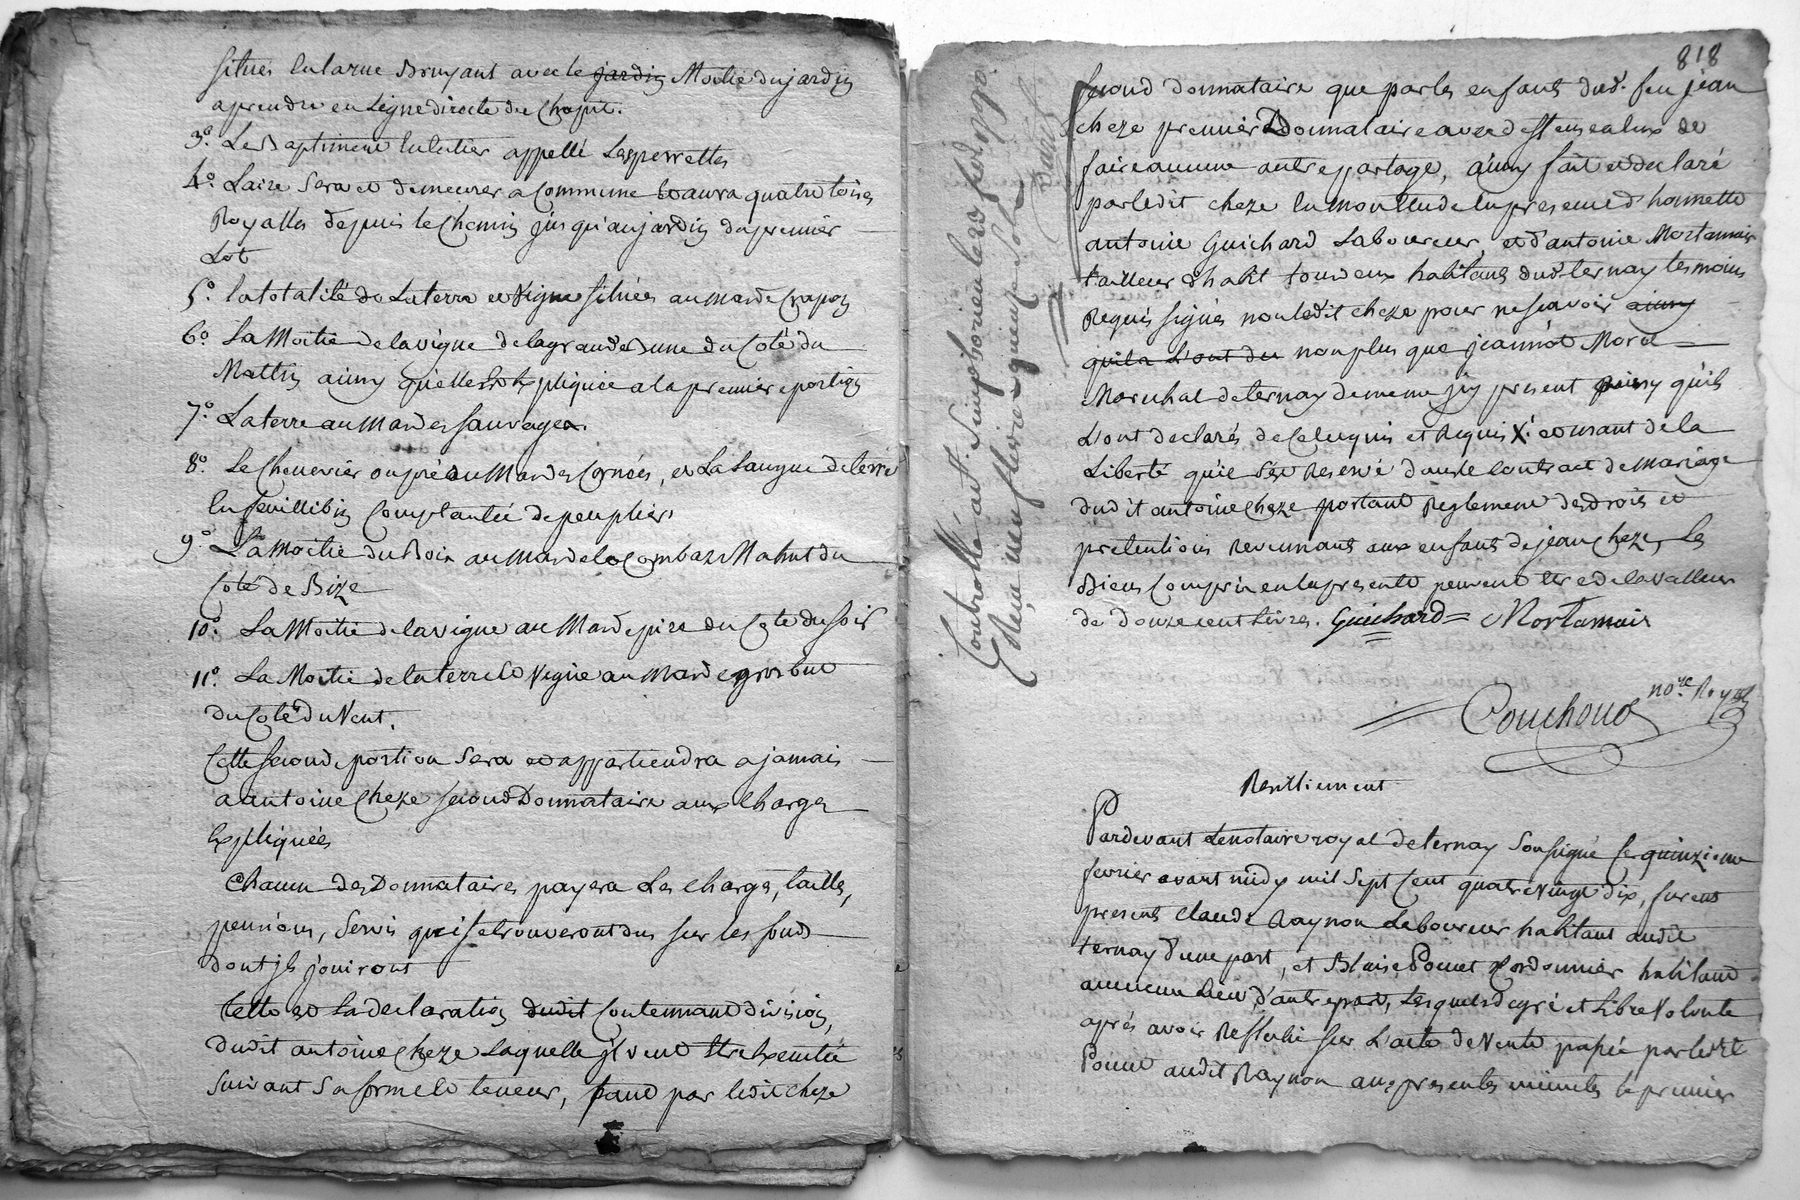 situés en la rue Bruyant avec le jardin Moitié du jardin
a prendre en Ligne directe du Chapit.
3°. Le Baptiment en entier appellé Lesperrettes
4°. Laire Sera et demeurera Commune et aura quatre toises
Royalles depuis le Chemin jusqu'au jardin du premier
Lot
5°. la totalité de La terre et Vigne situées au Mas de Crapon
6°. La Moitié de la vigne de la grande du Coté du
Mattin ainsy quelle Est Expliquée a la premiere portion
7°. La terre au Mas des sauvages.
8°. Le Chenevier ou pré au Mas des Cornées, et La Langue de terre
en feuillibin Complantée de peupliers
9°. La Moitié du Bois au Mas de la Combaz Mahut du
Coté de Bize
10°. La Moitié de la vigne au Mas de pize du Coté du soir
11°. La Moitié de la terre et Vigne au Mas de gros but
du Coté du Vent.
Cette seconde portion Sera et appartiendra a jamais
a antoine Cheze second Donnataire aux Charges
Expliquées
Chacun des Donnataires payera Les charges, tailles,
pensions, Servis qui se trouveront dus sur les fonds
dont jls jouiront
Cette est La declaration dudit Contenant division,
dudit antoine Cheze Laquelle jl veut Etre Executée
suivant sa forme et teneur, tant par ledit Cheze
818
second donnataire que par les enfants dud. feu jean
cheze premier Donnataire avec deffenses a eux de
faire aucun autre partage, ainsy fait et declaré
par ledit cheze en presence d'honnette
antoine Guichard Laboureur, et d'antoine Mortamais
tailleur d'habit tous deux habitants dud. ternay temoins
Requis signés non ledit cheze pour ne scavoir ainsy
qu'il a L'ont de non plus que jeannot Morel
Marechal de ternay de meme jcy present ainsy qu'ils
L'ont declarés de Ce enquis et Requis X. et usant de la
Liberté qu'il s'est Reservé dans le contract de mariage
dudit antoine Cheze portant Reglement des droits et
pretentions revennants aux enfants de jean Cheze, Les
Biens Compris en la presente peuvent etre de la valleur
de douze cent Livres. Guichard = Mortamais
Couchoud no.re Royal
Controllé a St. Simphorien le
Reçu neuf livres quinze sols
Resilliement
Pardevant Le notaire royal de ternay Soussigné Ce quinzieme
fevrier avant midy mil sept Cent quatre vingt dix, furent
presents Claude Raynon Laboureur habitant audit
ternay d'une part, et Blaise Poncet Cordonnier habitant
au meme Lieu d'autre part, Lesquels de gré et Libre Volonté
aprés avoir Refflechi sur L'acte de Vente passée par ledit
Poncet audit Raynon aux presentes minutes le premier